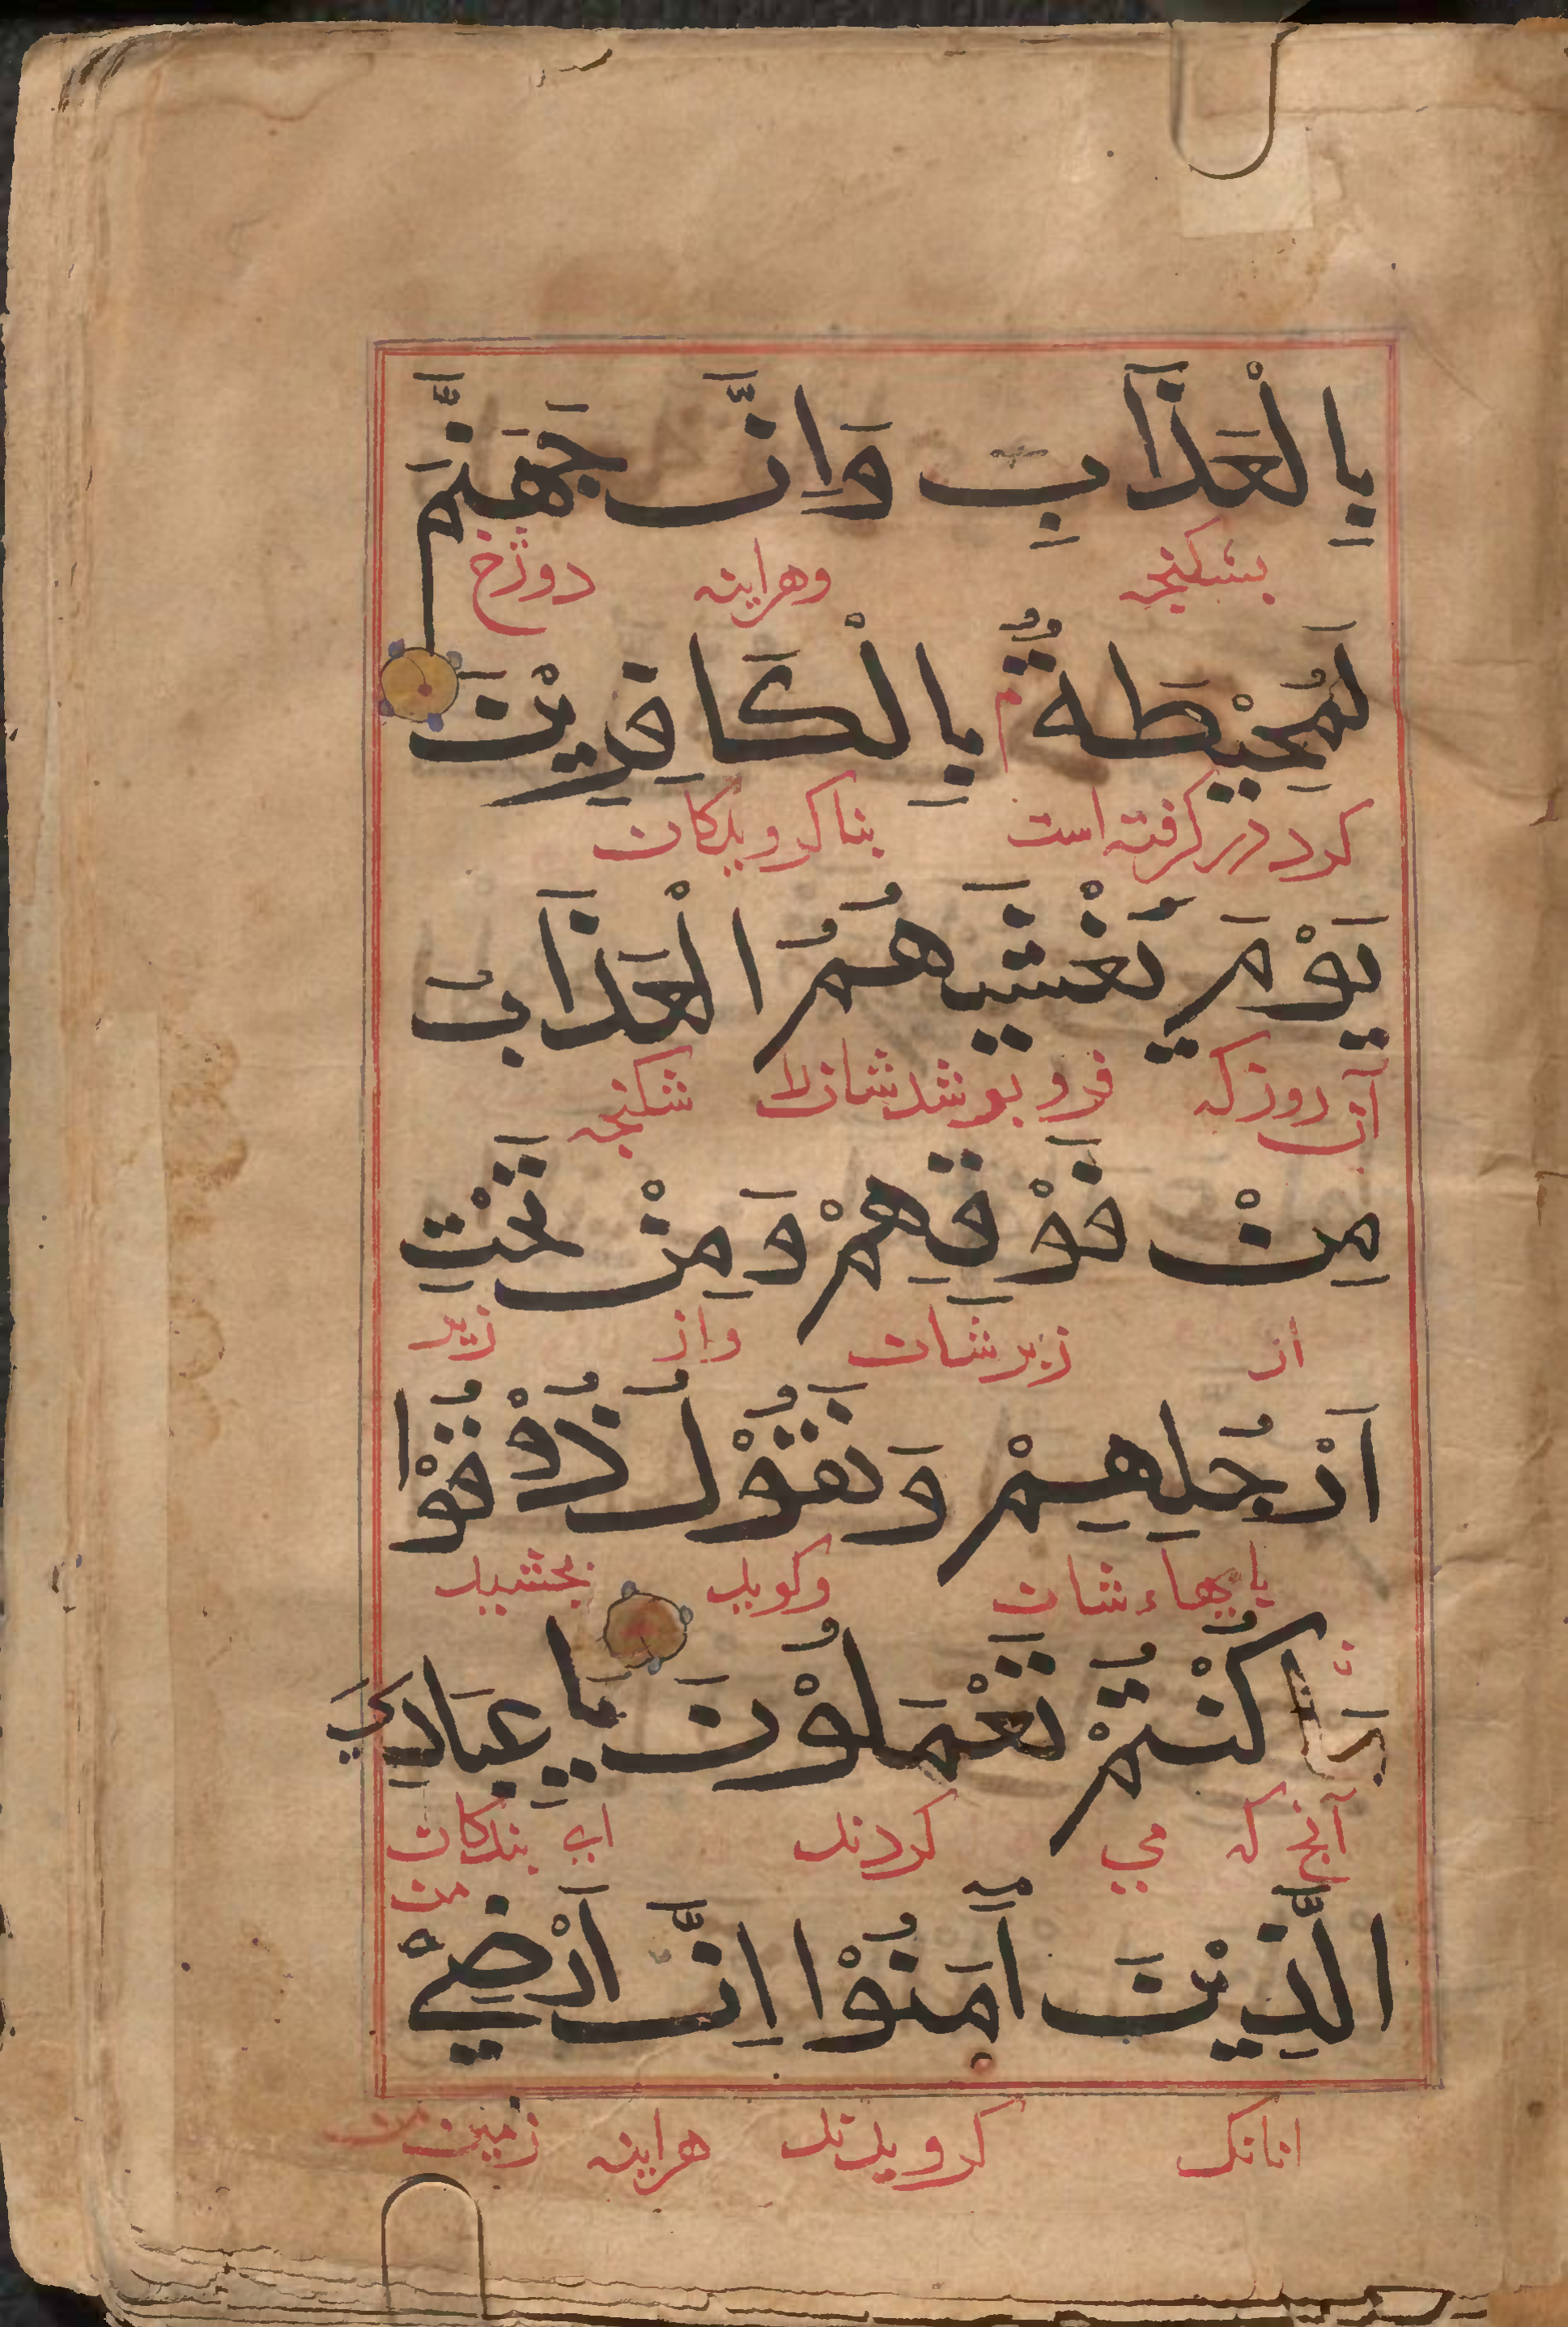 بِالْعَذَابِ وَاِنَّ جَهَنَّمَ
بشكنجه وهراينه دوزخ
لَمُحِيْطَةٌ بِالْكَافِرِيْنَ
كرد در كرفته است بنا كرويدكان
يَوْمَ يَغْشَيٰهُمُ الْعَذَابُ
آن روز كه فرو بوشد شانرا شكنجه
مِنْ فَوْقِهِمْ وَمِنْ تَحْتِ
از زبر شان واز زير
اَرْجُلِهِمْ وَنَقُوْلُ ذُوْقُوْا
بايهاء شان وكويد بجشيد
كُنْتُمْ تَعْمَلُوْنَ يَا عِبَادِيَ
آنج كه مي كردند اي بندكان
من
الَّذِيْنَ اٰمَنُوْا اِنَّ اَرْضِيْ
انانك كرويدند هراينه زمين من